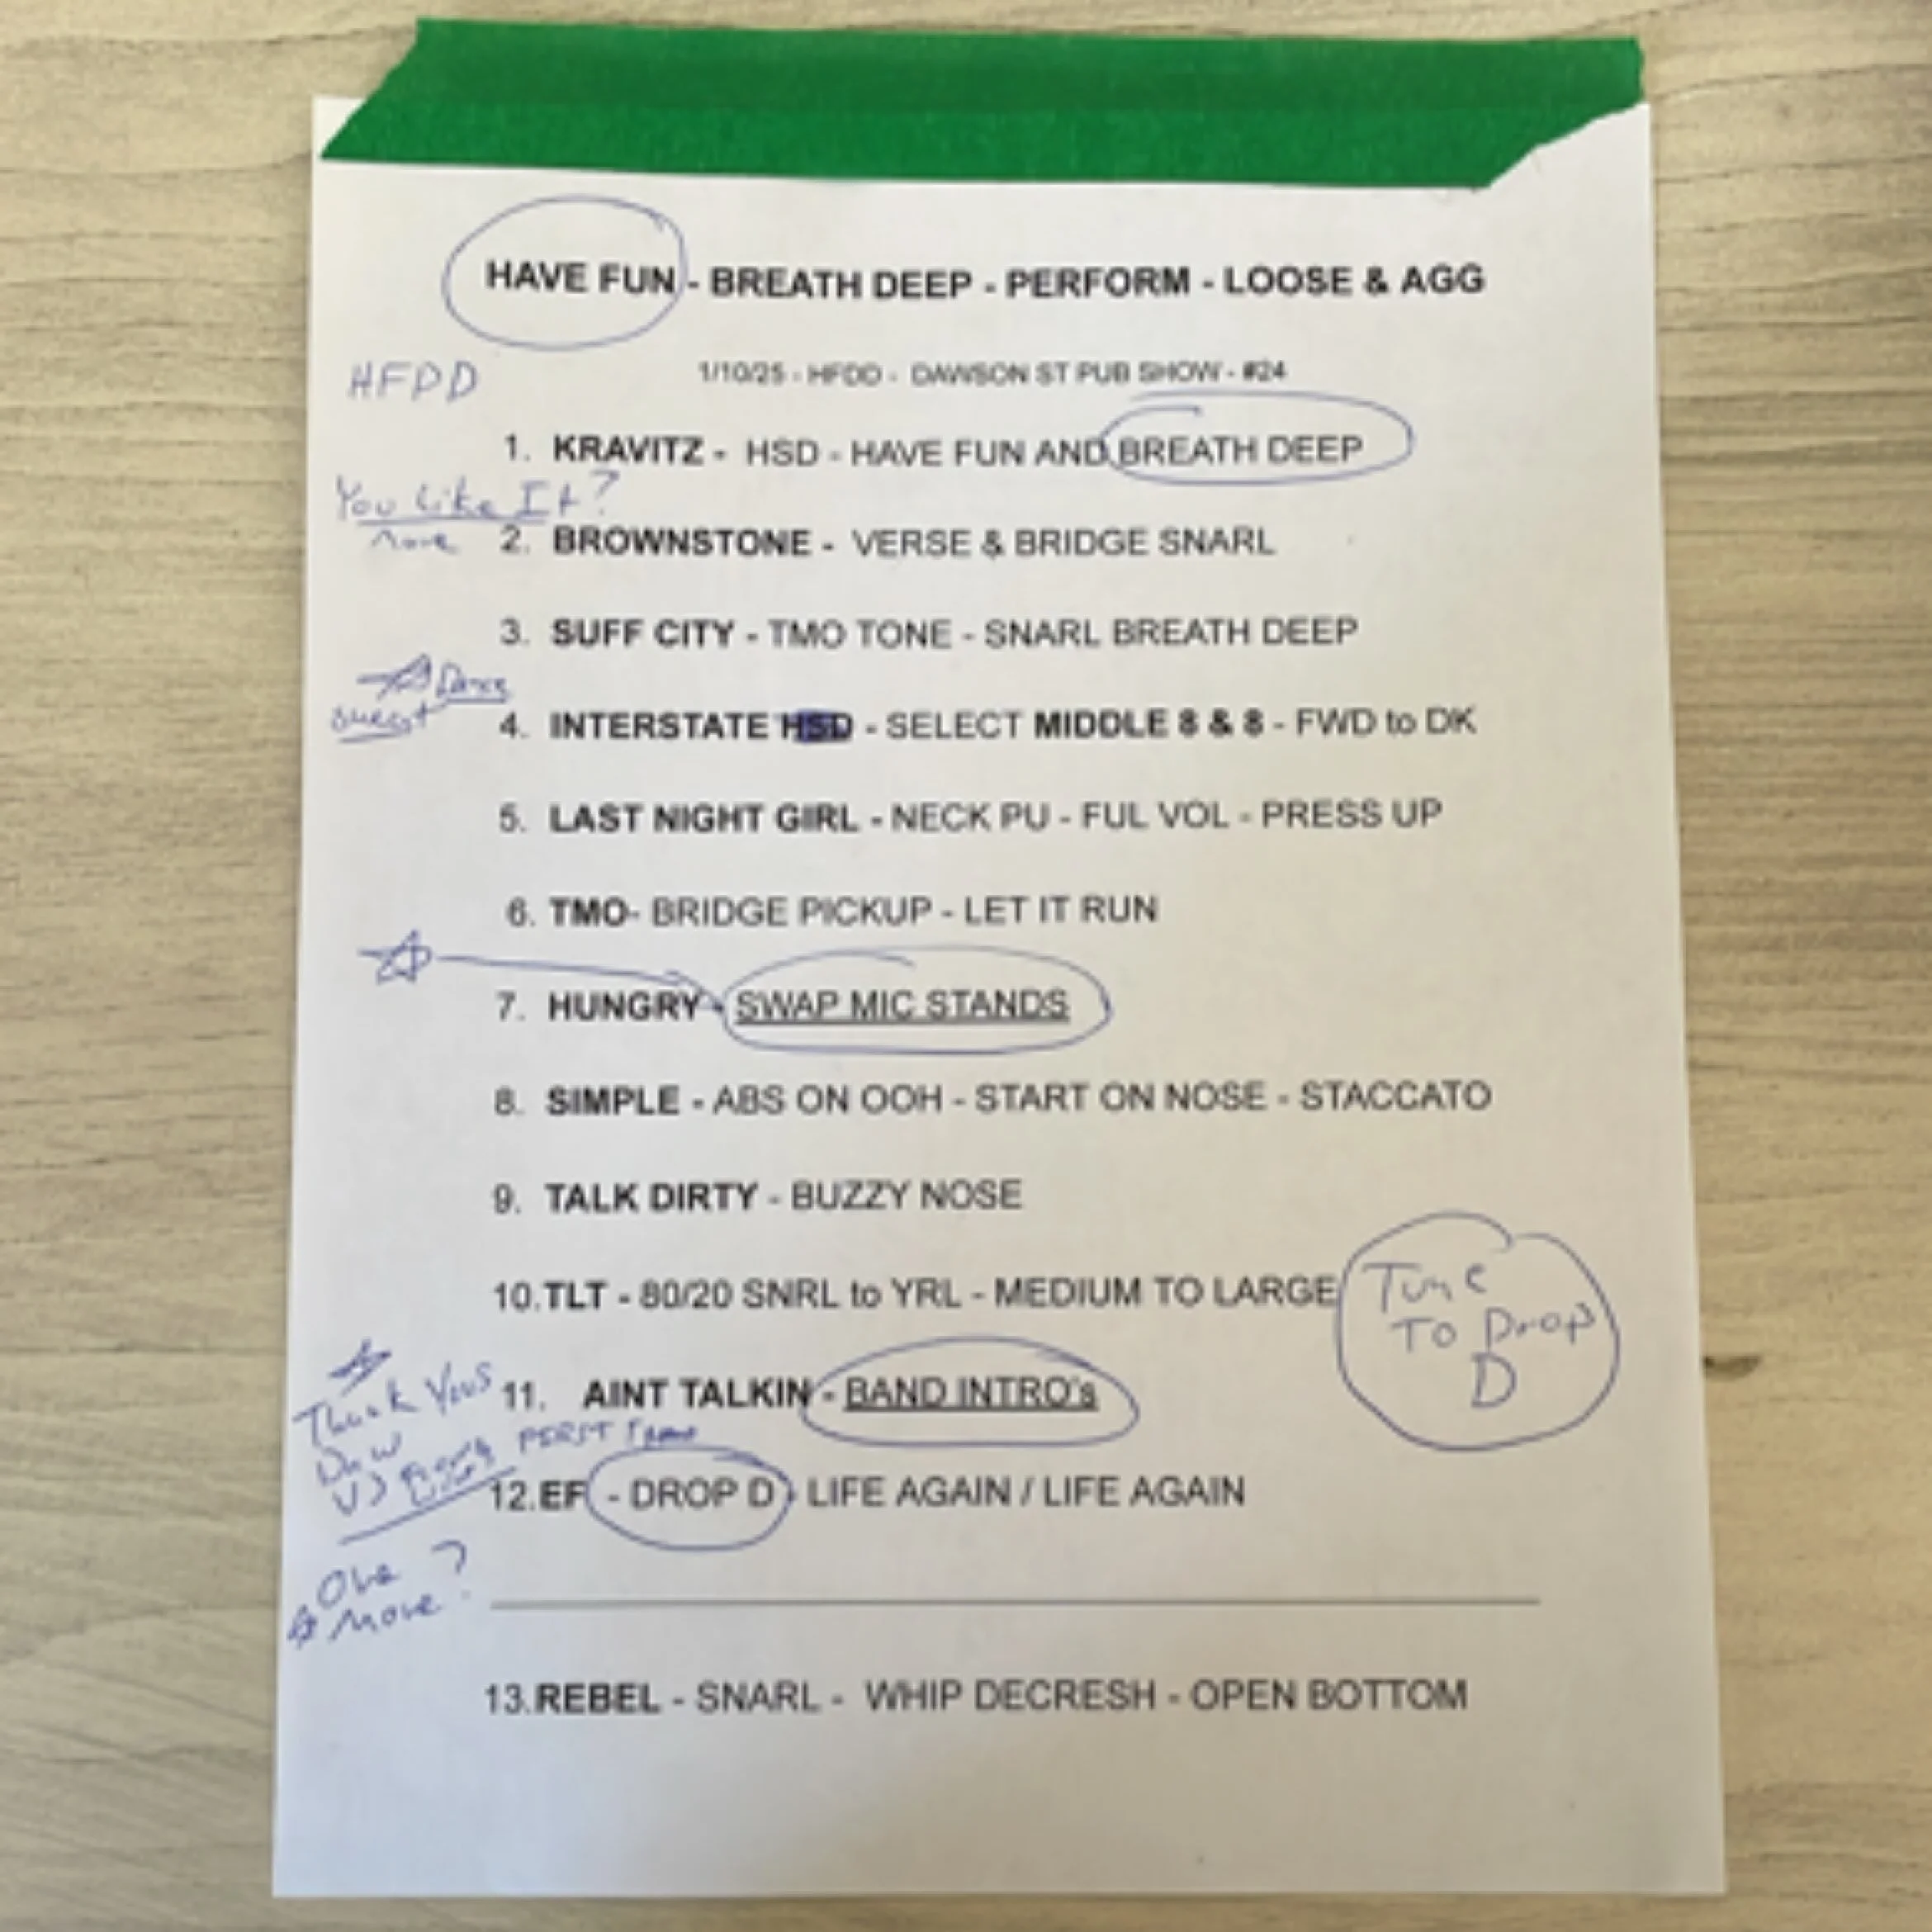 HAVE FUN - BREATH DEEP - PERFORM - LOOSE & AGG
HFDD
1/10/25 - HFDD - DAWSON ST PUB SHOW - #24
1. KRAVITZ - HSD - HAVE FUN AND BREATH DEEP
You Like It?
more
2. BROWNSTONE - VERSE & BRIDGE SNARL
3. SUFF CITY - TMO TONE - SNARL BREATH DEEP
4. INTERSTATE HSD - SELECT MIDDLE 8 & 8 - FWD to DK
5. LAST NIGHT GIRL - NECK PU - FUL VOL - PRESS UP
6. TMO- BRIDGE PICKUP - LET IT RUN
7. HUNGRY - SWAP MIC STANDS
8. SIMPLE - ABS ON OOH - START ON NOSE - STACCATO
9. TALK DIRTY - BUZZY NOSE
10.TLT - 80/20 SNRL to YRL - MEDIUM TO LARGE
Tune
To Drop
D
Thank Yous
11. AINT TALKIN - BAND INTRO's
FIRST
12.EF - DROP D - LIFE AGAIN / LIFE AGAIN
One
More?
13.REBEL - SNARL - WHIP DECRESH - OPEN BOTTOM